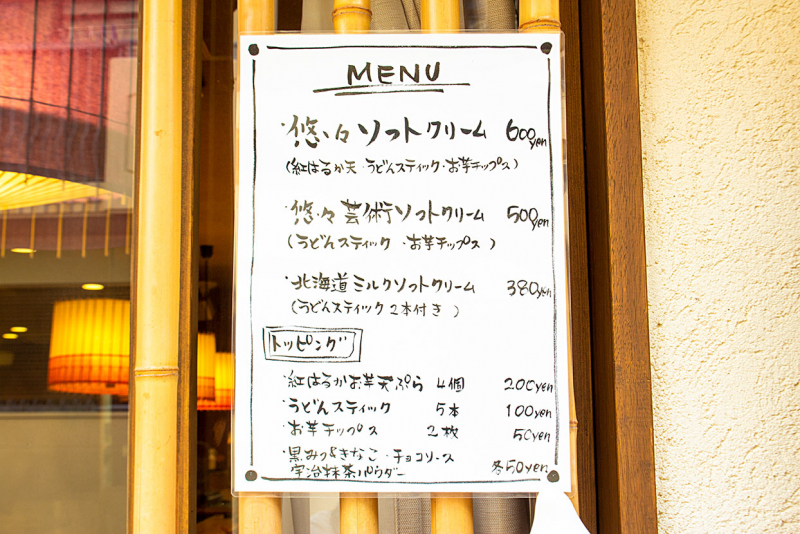 MENU
・悠々ソフトクリーム 600yen
(紅はるか天・うどんスティック・お芋チップス)
・悠々芸術ソフトクリーム 500yen
(うどんスティック・お芋チップス)
・北海道ミルクソフトクリーム 380yen
(うどんスティック2本付き)
トッピング
・紅はるかお芋天ぷら 4個 200yen
・うどんスティック 5本 100yen
・お芋チップス 2枚 50yen
・黒みつ&きなこ・チョコソース
宇治抹茶パウダー 各50yen